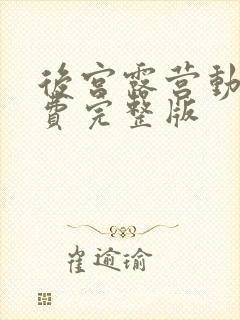 後宮露营動
費完整版
崔逾瑜